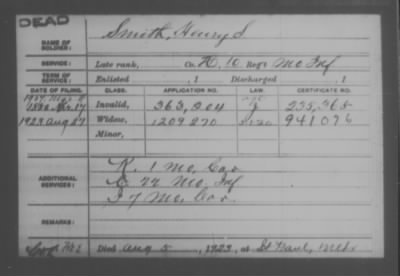 DEAD
NAME OF SOLDIER: Smith, Henry S
SERVICE: Late rank, Co. H, 10 Reg't Mo Inf
TERM OF SERVICE: Enlisted , 1 Discharged , 1
DATE OF FILING. CLASS. APPLICATION NO. LAW. CERTIFICATE NO.
Invalid, 363,204 235,365
1923 Aug 27 Widow, 1209270 941076
Minor,
ADDITIONAL SERVICES: K. 1 Mo. Cav
22 Mo. Inf
I 7 Mo. Cav.
REMARKS:
Died Aug 5, 1923, at St Paul,